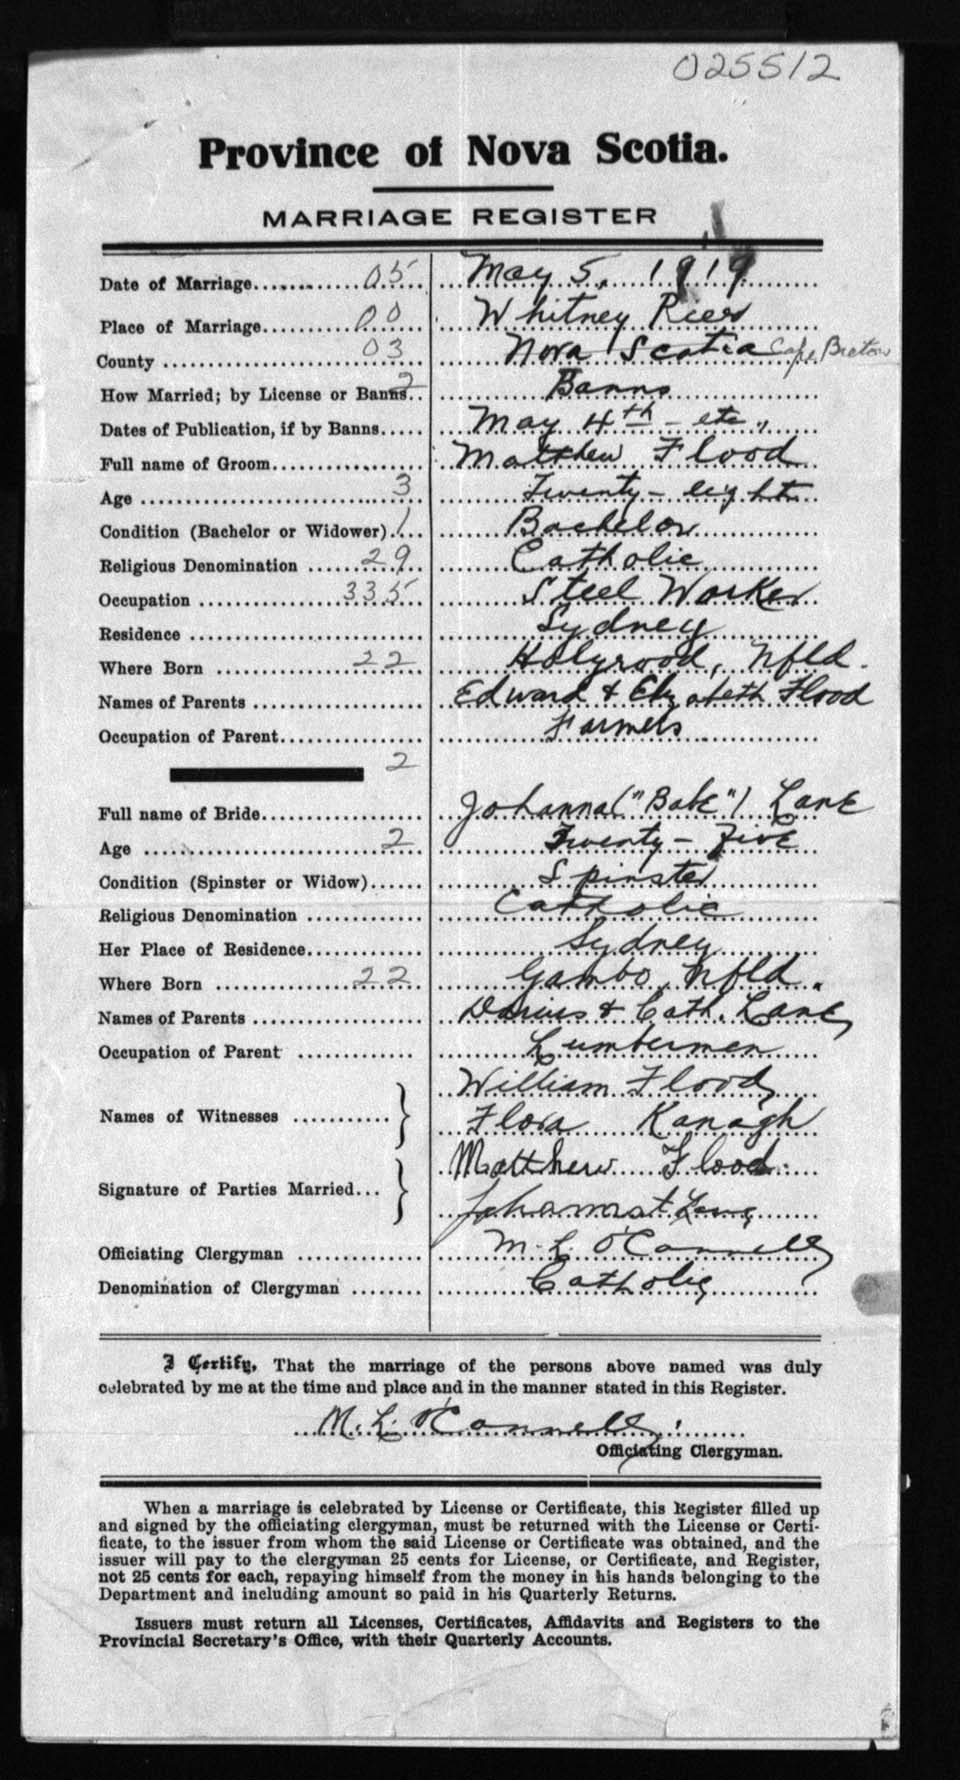 025512
Province of Nova Scotia.
MARRIAGE REGISTER
Date of Marriage............05..... May 5, 1919
Place of Marriage............00.... Whitney Pier
County ........................03..... Nova Scotia Cape Breton
How Married; by License or Banns.. 2 Banns
Dates of Publication, if by Banns..... May 4th - etc.,
Full name of Groom.................. Matthew Flood
Age ............................3.. Twenty-eight
Condition (Bachelor or Widower).1.. Bachelor
Religious Denomination ......29.. Catholic
Occupation ..................335.. Steel Worker
Residence .......................... Sydney
Where Born ..................22.. Holyrood, Nfld.
Names of Parents .................. Edward & Elizabeth Flood
Occupation of Parent................ Farmers
2
Full name of Bride.................. Johanna ("Babe") Lane
Age ............................2.. Twenty-Five
Condition (Spinster or Widow)...... Spinster
Religious Denomination ............ Catholic
Her Place of Residence............ Sydney
Where Born ..................22.. Gambo, Nfld.
Names of Parents .................. Darius & Cath. Lane
Occupation of Parent ............ Lumbermen
William Flood
Names of Witnesses ...........} Flora Kanagh
Matthew Flood.
Signature of Parties Married...} Lane
Officiating Clergyman ............ M. L. O'Connell
Denomination of Clergyman ........ Catholic
I Certify, That the marriage of the persons above named was duly
celebrated by me at the time and place and in the manner stated in this Register.
M. L. O'Connell
Officiating Clergyman.
When a marriage is celebrated by License or Certificate, this Register filled up
and signed by the officiating clergyman, must be returned with the License or Certi-
ficate, to the issuer from whom the said License or Certificate was obtained, and the
issuer will pay to the clergyman 25 cents for License, or Certificate, and Register,
not 25 cents for each, repaying himself from the money in his hands belonging to the
Department and including amount so paid in his Quarterly Returns.
Issuers must return all Licenses, Certificates, Affidavits and Registers to the
Provincial Secretary's Office, with their Quarterly Accounts.